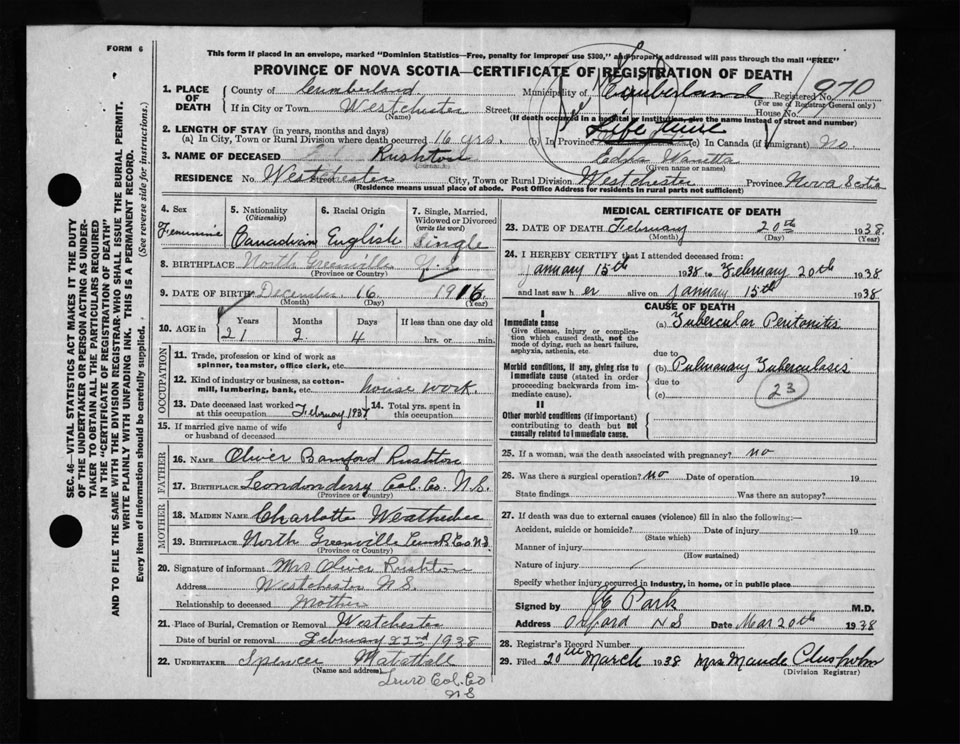 FORM 6
This form if placed in an envelope, marked "Dominion Statistics—Free, penalty for improper use $300," and properly addressed will pass through the mail "FREE"
PROVINCE OF NOVA SCOTIA—CERTIFICATE OF REGISTRATION OF DEATH
SEC. 46—VITAL STATISTICS ACT MAKES THE DUTY
OF THE UNDERTAKER OR PERSON ACTING AS UNDER-
TAKER TO OBTAIN ALL THE PARTICULARS REQUIRED
IN THE "CERTIFICATE OF REGISTRATION OF DEATH"
AND TO FILE THE SAME WITH THE DIVISION REGISTRAR WHO SHALL ISSUE THE BURIAL PERMIT.
WRITE PLAINLY WITH UNFADING INK. THIS IS A PERMANENT RECORD.
Every item of information should be carefully supplied. (See reverse side for instructions.)
1. PLACE OF DEATH County of Cumberland Municipality of Cumberland Registered No. 970
(For use of Registrar General only)
If in City or Town Westchester Street House No.
(Name) (If death occurred in a hospital or institution, give the name instead of street and number)
2. LENGTH OF STAY (in years, months and days)
(a) In City, Town or Rural Division where death occurred 16 yrs. (b) In Province Life time (c) In Canada (if immigrant) No.
3. NAME OF DECEASED Rushton Edna
(Surname) (Given name or names)
RESIDENCE No. Westchester Street City, Town or Rural Division Westchester Province Nova Scotia
(Residence means usual place of abode. Post Office Address for residents in rural parts not sufficient)
4. Sex Feminine
5. Nationality (Citizenship) Canadian
6. Racial Origin English
7. Single, Married, Widowed or Divorced (write the word) Single
8. BIRTHPLACE North Greenville N.S
(Province or Country)
9. DATE OF BIRTH December 16 1916.
(Month) (Day) (Year)
10. AGE in Years 21 Months 2 Days 4 If less than one day old hrs. or min.
OCCUPATION
11. Trade, profession or kind of work as spinner, teamster, office clerk, etc.
12. Kind of industry or business, as cotton-mill, lumbering, bank, etc. house work.
13. Date deceased last worked at this occupation February 1937 14. Total yrs. spent in this occupation
15. If married give name of wife or husband of deceased
FATHER
16. NAME Oliver Bamford Rushton
17. BIRTHPLACE Londonderry Col. Co. N.S.
(Province or Country)
MOTHER
18. MAIDEN NAME Charlotte Weatherbee
19. BIRTHPLACE North Greenville Cum. Co N.S.
(Province or Country)
20. Signature of informant Mrs Oliver Rushton
Address Westchester N.S.
Relationship to deceased Mother
21. Place of Burial, Cremation or Removal Westchester
Date of burial or removal February 22nd 1938
22. UNDERTAKER Spencer
(Name and address)
Truro Col. Co
N S
MEDICAL CERTIFICATE OF DEATH
23. DATE OF DEATH February 20th 1938
(Month) (Day) (Year)
24. I HEREBY CERTIFY that I attended deceased from:
January 15th 1938 to February 20th 1938
and last saw her alive on January 15th 1938
CAUSE OF DEATH
I
Immediate cause
Give disease, injury or complication which caused death, not the mode of dying, such as heart failure, asphyxia, asthenia, etc.
(a) Tubercular Peritonitis
due to
Morbid conditions, if any, giving rise to immediate cause (stated in order proceeding backwards from immediate cause).
(b) Pulmonary Tuberculosis
due to
(c) 23
II
Other morbid conditions (if important) contributing to death but not causally related to immediate cause.
25. If a woman, was the death associated with pregnancy? no
26. Was there a surgical operation? no Date of operation 19
State findings Was there an autopsy?
27. If death was due to external causes (violence) fill in also the following:—
Accident, suicide or homicide? Date of injury 19
(State which)
Manner of injury
(How sustained)
Nature of injury
Specify whether injury occurred in industry, in home, or in public place
Signed by Park M.D.
Address Oxford N S Date Mar 20th 1938
28. Registrar's Record Number
29. Filed 20th March 1938 Mrs Maude Chisholm
(Division Registrar)